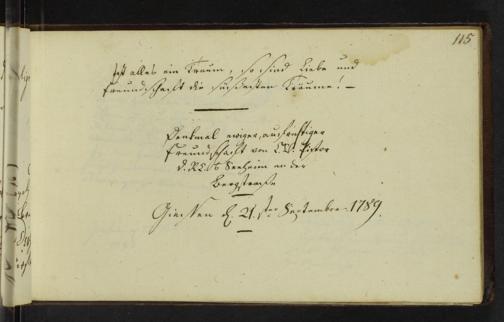 115
Ist alles ein Traum, so sind Liebe und
Freundschaft die süssesten Träume! —
Denkmal ewiger, aufrichtiger
Freundschaft von C. W. Pistor
d. R. C. Seeheim an der
Bergstrasse
Giessen d. 21.sten Septembre. 1789.